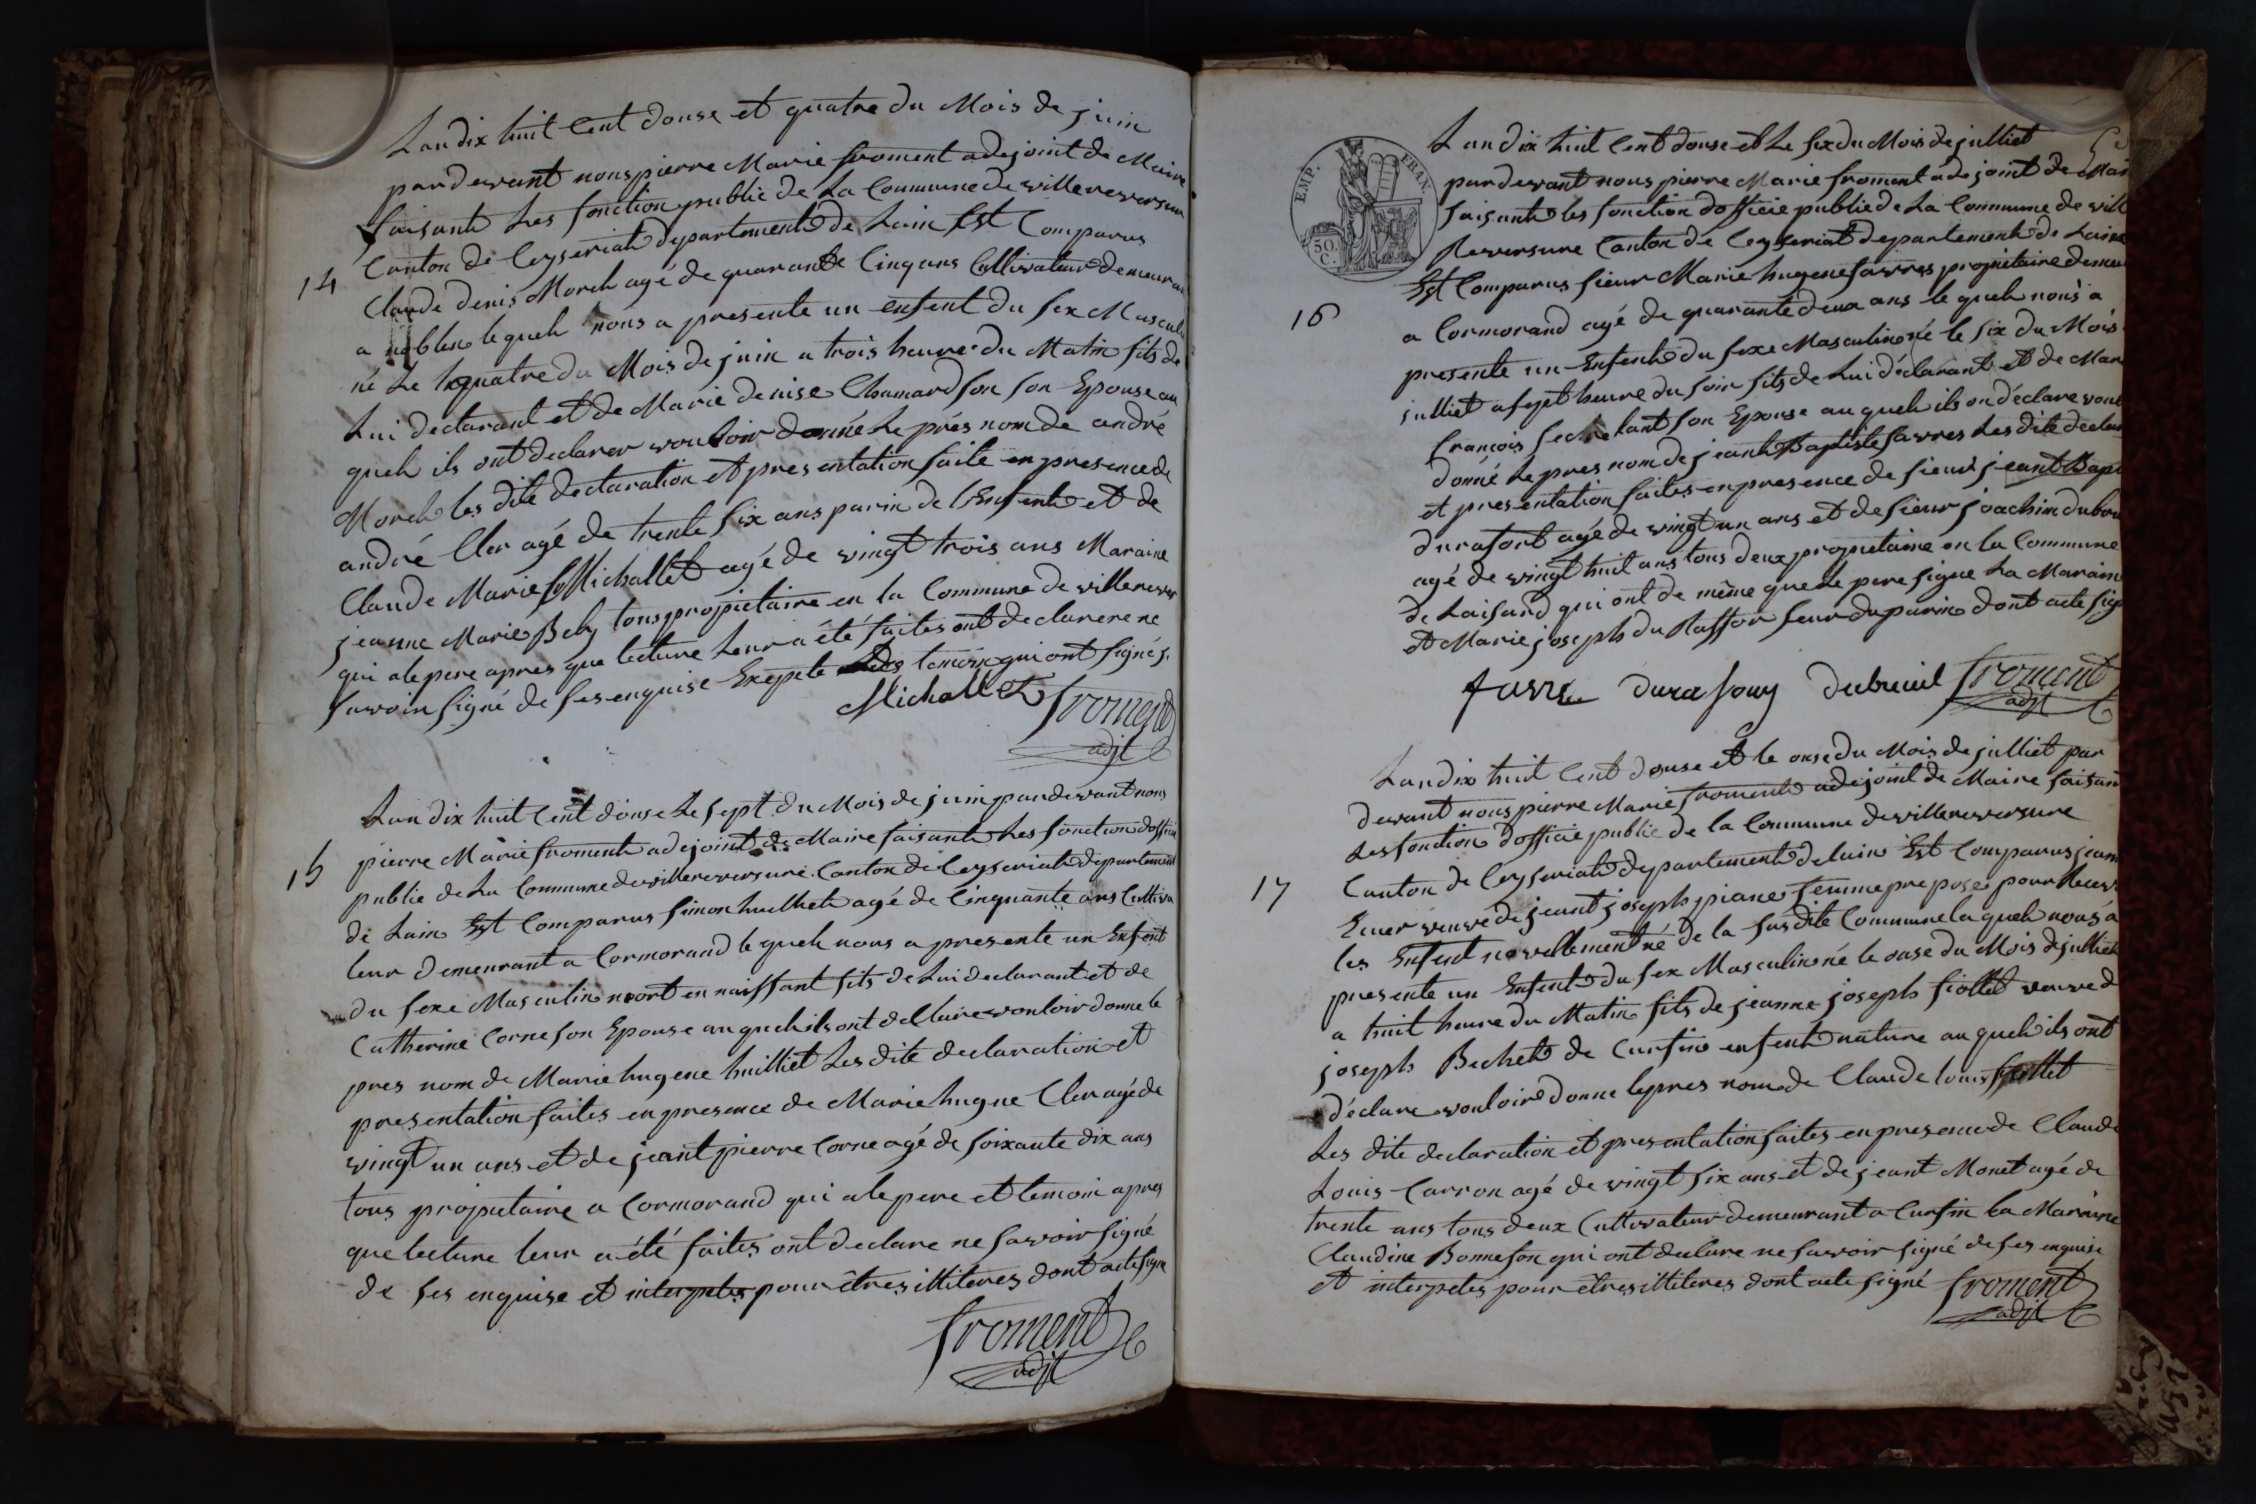 Lan dix huit Cent douse et quatre du Mois de juin
pardevant nous pierre Marie froment adejoint de Maire
faisant Les fonction public de La Commune de villereversure
Canton de Ceyseriat departement de Lain Est Comparus
14
Claude denis Morel agé de quarante Cinq ans Cultivateur demeuran
a noblen le quel nous a presente un enfent du sex Masculi
né Le quatre du Mois de juin a trois heure du Matin fils de
Lui declarant et de Marie denise Chamard son son Epouse au
quel ils ont declarer vouloir donné Le prés nom de andré
Morel les dite declaration et presentation faite en presence de
andré Cler agé de trente six ans parin de l'Enfent et de
Claude Marie Michallet agé de vingt trois ans Maraine
jeanne Marie Bely tous propietaire en la Commune de villerever
qui a le pere apres que lecture Leur a été faites ont declarere ne
savoir signé de ses enquise Exepte temoin qui ont signés
Michallet froment
adjt
Lan dix huit Cent douse Le sept du Mois de juin par devant nous
15
pierre Marie froment adejoint de Maire faisant Les fonction d'officie
public de La Commune de villereversure Canton de Ceyseriat departement
de Lain Est Comparus simon huilliet agé de Cinquante ans Cultiva
teur demeurant a Cormorand le quel nous a presente un Enfent
du sexe Masculin mort en naissant fils de Lui declarant et de
Catherine Corne son Epouse au quel ils ont declaire vouloir donne le
pres nom de Marie hugene huilliet Les dite declaration et
presentation faites en presence de Marie hugne Cler agé de
vingt un ans et de jeant pierre Corne agé de soixante dix ans
tous propietaire a Cormorand qui a le pere et temoin apres
que lecture leur a été faites ont declare ne savoir signé
de ses enquise et interpetes pour êtres illiteres dont acte signe
froment
adjt
EMP. FRAN.
50. C.
Lan dix huit Cent douse et Le six du Mois de julliet
par devant nous pierre Marie froment adejoint de Mai
faisant les fonction dofficie public de La Commune de vill
Reversure Canton de Ceyseriat departement de Lain
Est Comparus sieur Marie hugene favres propietaire demeu
16
a Cormorand agé de quarante deux ans le quel nous a
presente un Enfent du sexe Masculin né le six du Mois
julliet a sept heure du soir fils de Lui déclarant et de Mar
françois son Epouse au quel ils on déclare voul
donné Le pres nom de jeant Baptiste favres Les dite declar
et presentation faites en presence de sieur jeant Bapt
durafort agé de vingt un ans et de sieur joachim dubru
agé de vingt huit ans tous deux propietaire en la Commune
de Laisard qui ont de même que Le pere signe La Marain
et Marie joseph du Raffor seur du parin dont acte sig
favre dubreuil froment
adjt
Lan dix huit Cent douse et le onse du Mois de julliet par
devant nous pierre Marie froment adejoint de Maire faisan
Les fonction dofficie public de la Commune de villereversure
Canton de Ceyseriat departement de lain Est Comparus jean
17
veuve de jeant joseph piane femme prepose pour Recev
les Enfent nouvellement né de la susdite Commune la quel nous a
presente un Enfent du sex Masculin né le onse du Mois de julliet
a huit heure du Matin fils de jeanne joseph fiollet veuve d
joseph Bechet de Cursin enfent nature au quel ils ont
déclare vouloir donne le pres nom de Claude louis fiollet
Les dite declaration et presentation faites en presence de Claude
Louis Carron agé de vingt six ans et de jeant Monet agé de
trente ans tous deux Cultivateur demeurant a Cursin La Maraine
Claudine Bonneson qui ont declare ne savoir signé de ses enquise
et interpetes pour êtres illiteres dont acte signé froment
adjt